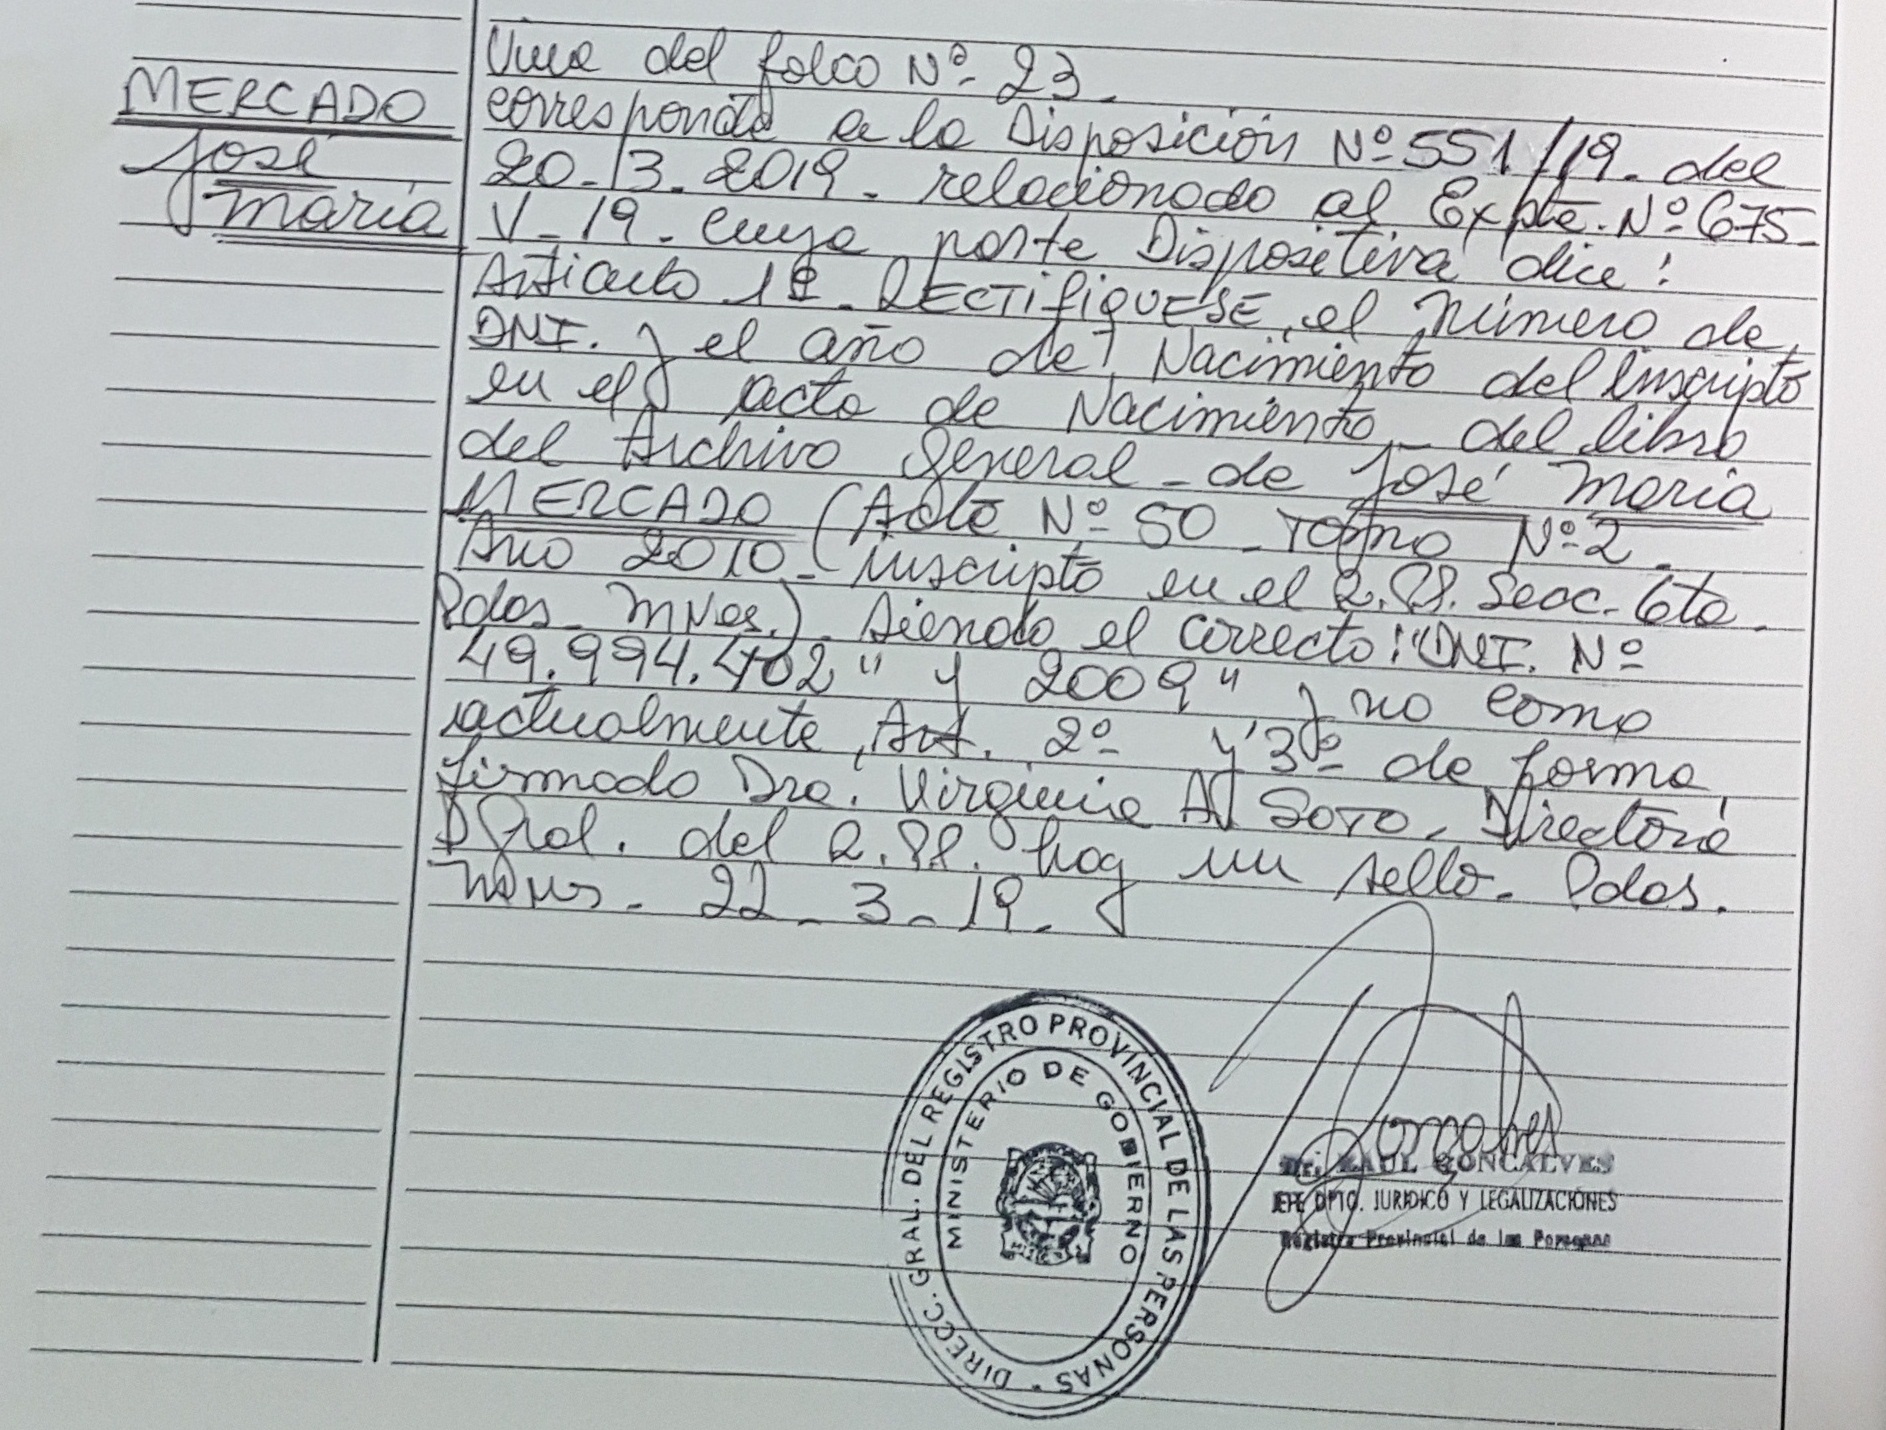 MERCADO
José
María
Viene del folio Nº 23.
corresponde a la Disposición Nº 551/19. del
20-3-2019. relacionado al Expte. Nº 675-
V-19. cuya parte Dispositiva dice:
Artículo 1º. RECTIFIQUESE, el Número de
DNI. y el año de Nacimiento del Inscripto
en el acta de Nacimiento, del libro
del Archivo General - de José María
MERCADO (Acta Nº 50 - Tomo Nº 2 -
Año 2010 - inscripto en el R.PP. Secc. 6ta.
Pdas. Mnes.). Siendo el correcto: "DNI. Nº
49.994.402" y 2009" y no como
actualmente, Art. 2º y 3º de forma
firmado Dra. Virginia A. Soto - Directora
Gral. del R.PP. hay un sello. Pdas.
Mnes. 22-3-19.
DIRECC. GRAL. DEL REGISTRO PROVINCIAL DE LAS PERSONAS
MINISTERIO DE GOBIERNO
Dr. RAUL GONCALVES
JEFE DPTO. JURIDICO Y LEGALIZACIONES
Registro Provincial de las Personas